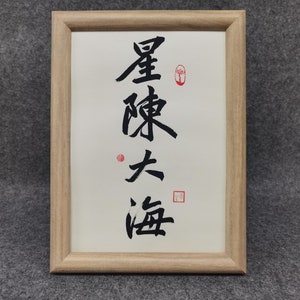 星陳大海